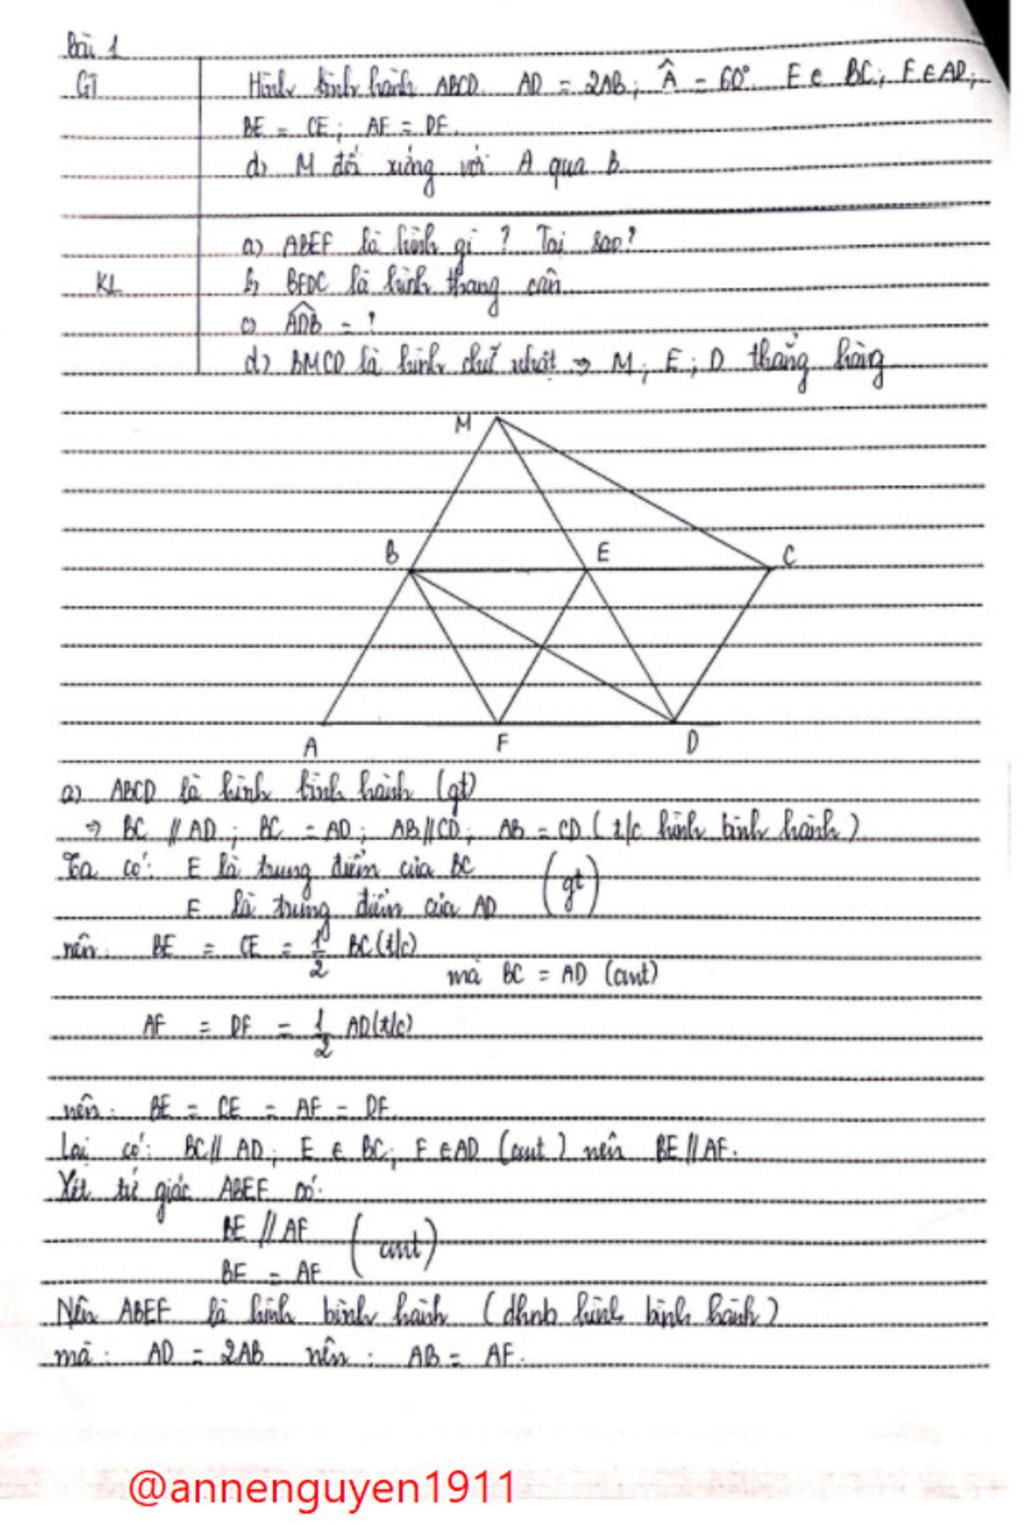 Bài 1
GT Hình bình hành ABCD. AD = 2AB; Â = 60°. E ∈ BC; F ∈ AD;
BE = CE; AF = DF.
d) M đối xứng với A qua B.
a) ABEF là hình gì? Tại sao?
KL b) BFDC là hình thang cân
c) \widehat{ADB} = ?
d) BMCD là hình chữ nhật ⇒ M; E; D thẳng hàng
M
B E C
A F D
a) ABCD là hình bình hành (gt)
⇒ BC // AD; BC = AD; AB // CD; AB = CD (t/c hình bình hành)
Ta có: E là trung điểm của BC
F là trung điểm của AD (gt)
nên: BE = CE = 1/2 BC (t/c)
mà BC = AD (cmt)
AF = DF = 1/2 AD (t/c)
nên: BE = CE = AF = DF.
Lại có: BC // AD; E ∈ BC; F ∈ AD (cmt) nên BE // AF.
Xét tứ giác ABEF có:
BE // AF
BE = AF (cmt)
Nên ABEF là hình bình hành (dhnb hình bình hành)
mà: AD = 2AB nên: AB = AF.
@annenguyen1911